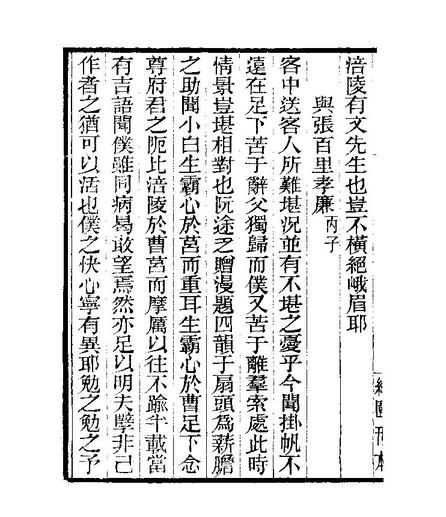 涪陵有文先生也豈不橫絕峨眉耶
與張百里孝廉丙子
客中送客人所難堪況並有不堪之憂乎今聞掛帆不
遠在足下苦于辭父獨歸而僕又苦于離羣索處此時
情景豈堪相對也阮途乏贈漫題四韻于扇頭爲薪膽
之助聞小白生霸心於莒而重耳生霸心於曹足下念
尊府君之阨比涪陵於曹莒而摩厲以往不踰半載當
有吉語聞僕雖同病曷敢望焉然亦足以明夫孽非己
作者之猶可以活也僕之快心寧有異耶勉之勉之予